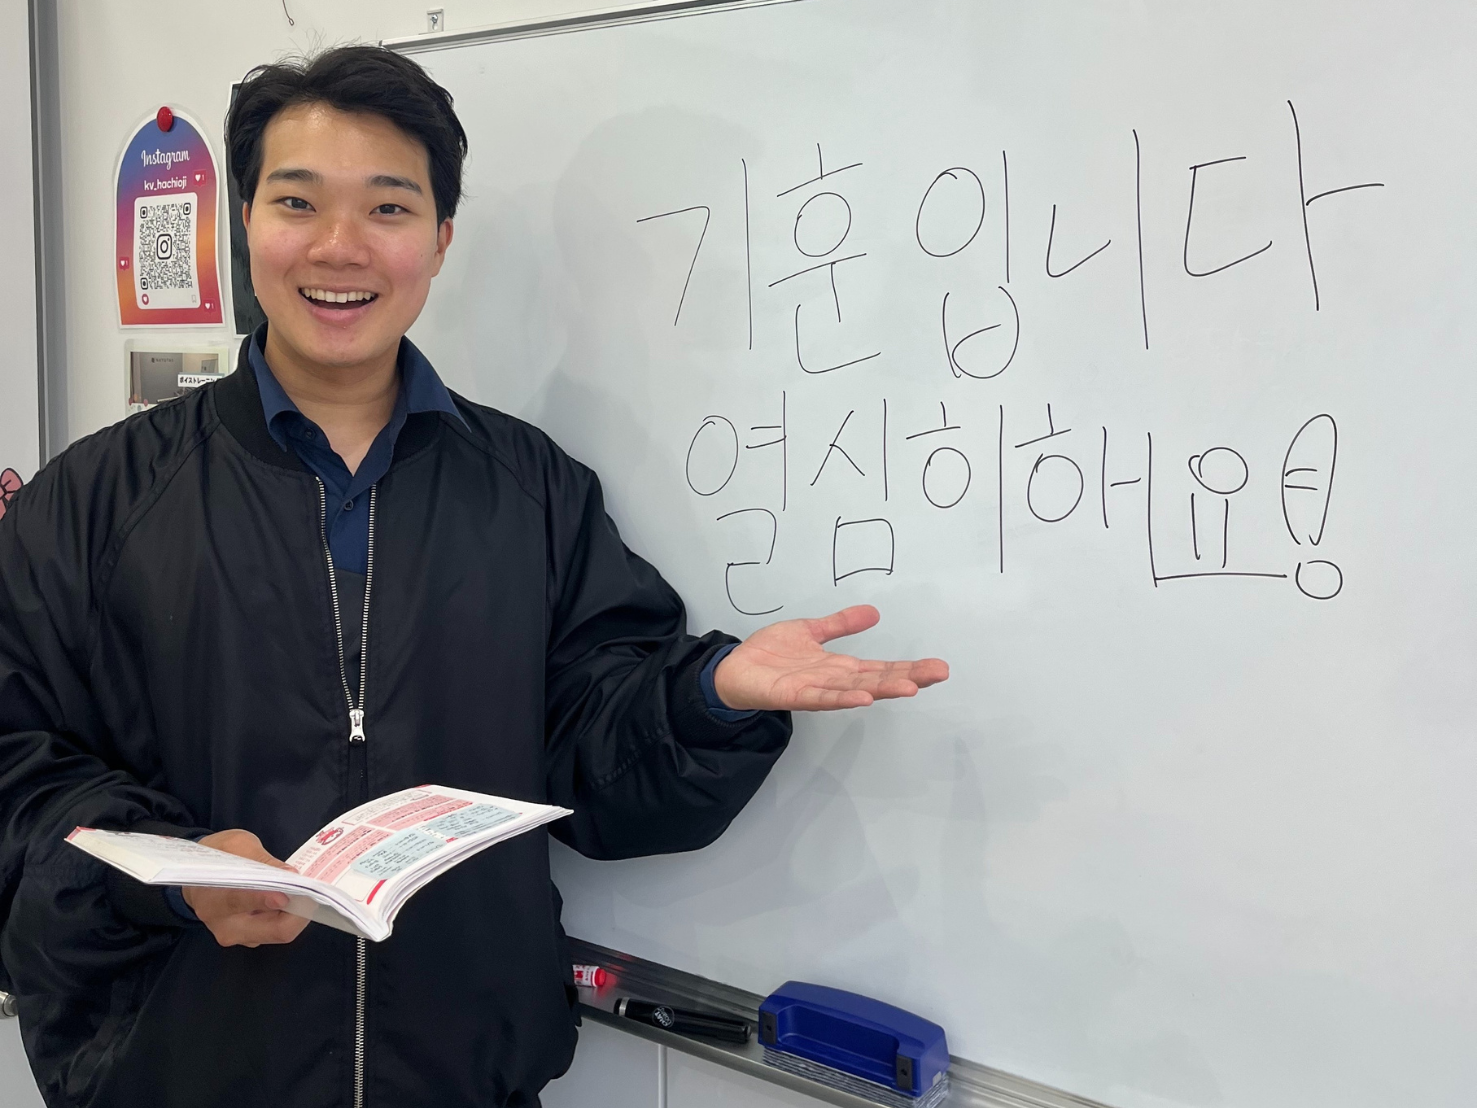 Instagram
kv_hachioji
기훈입니다
열심히해요!